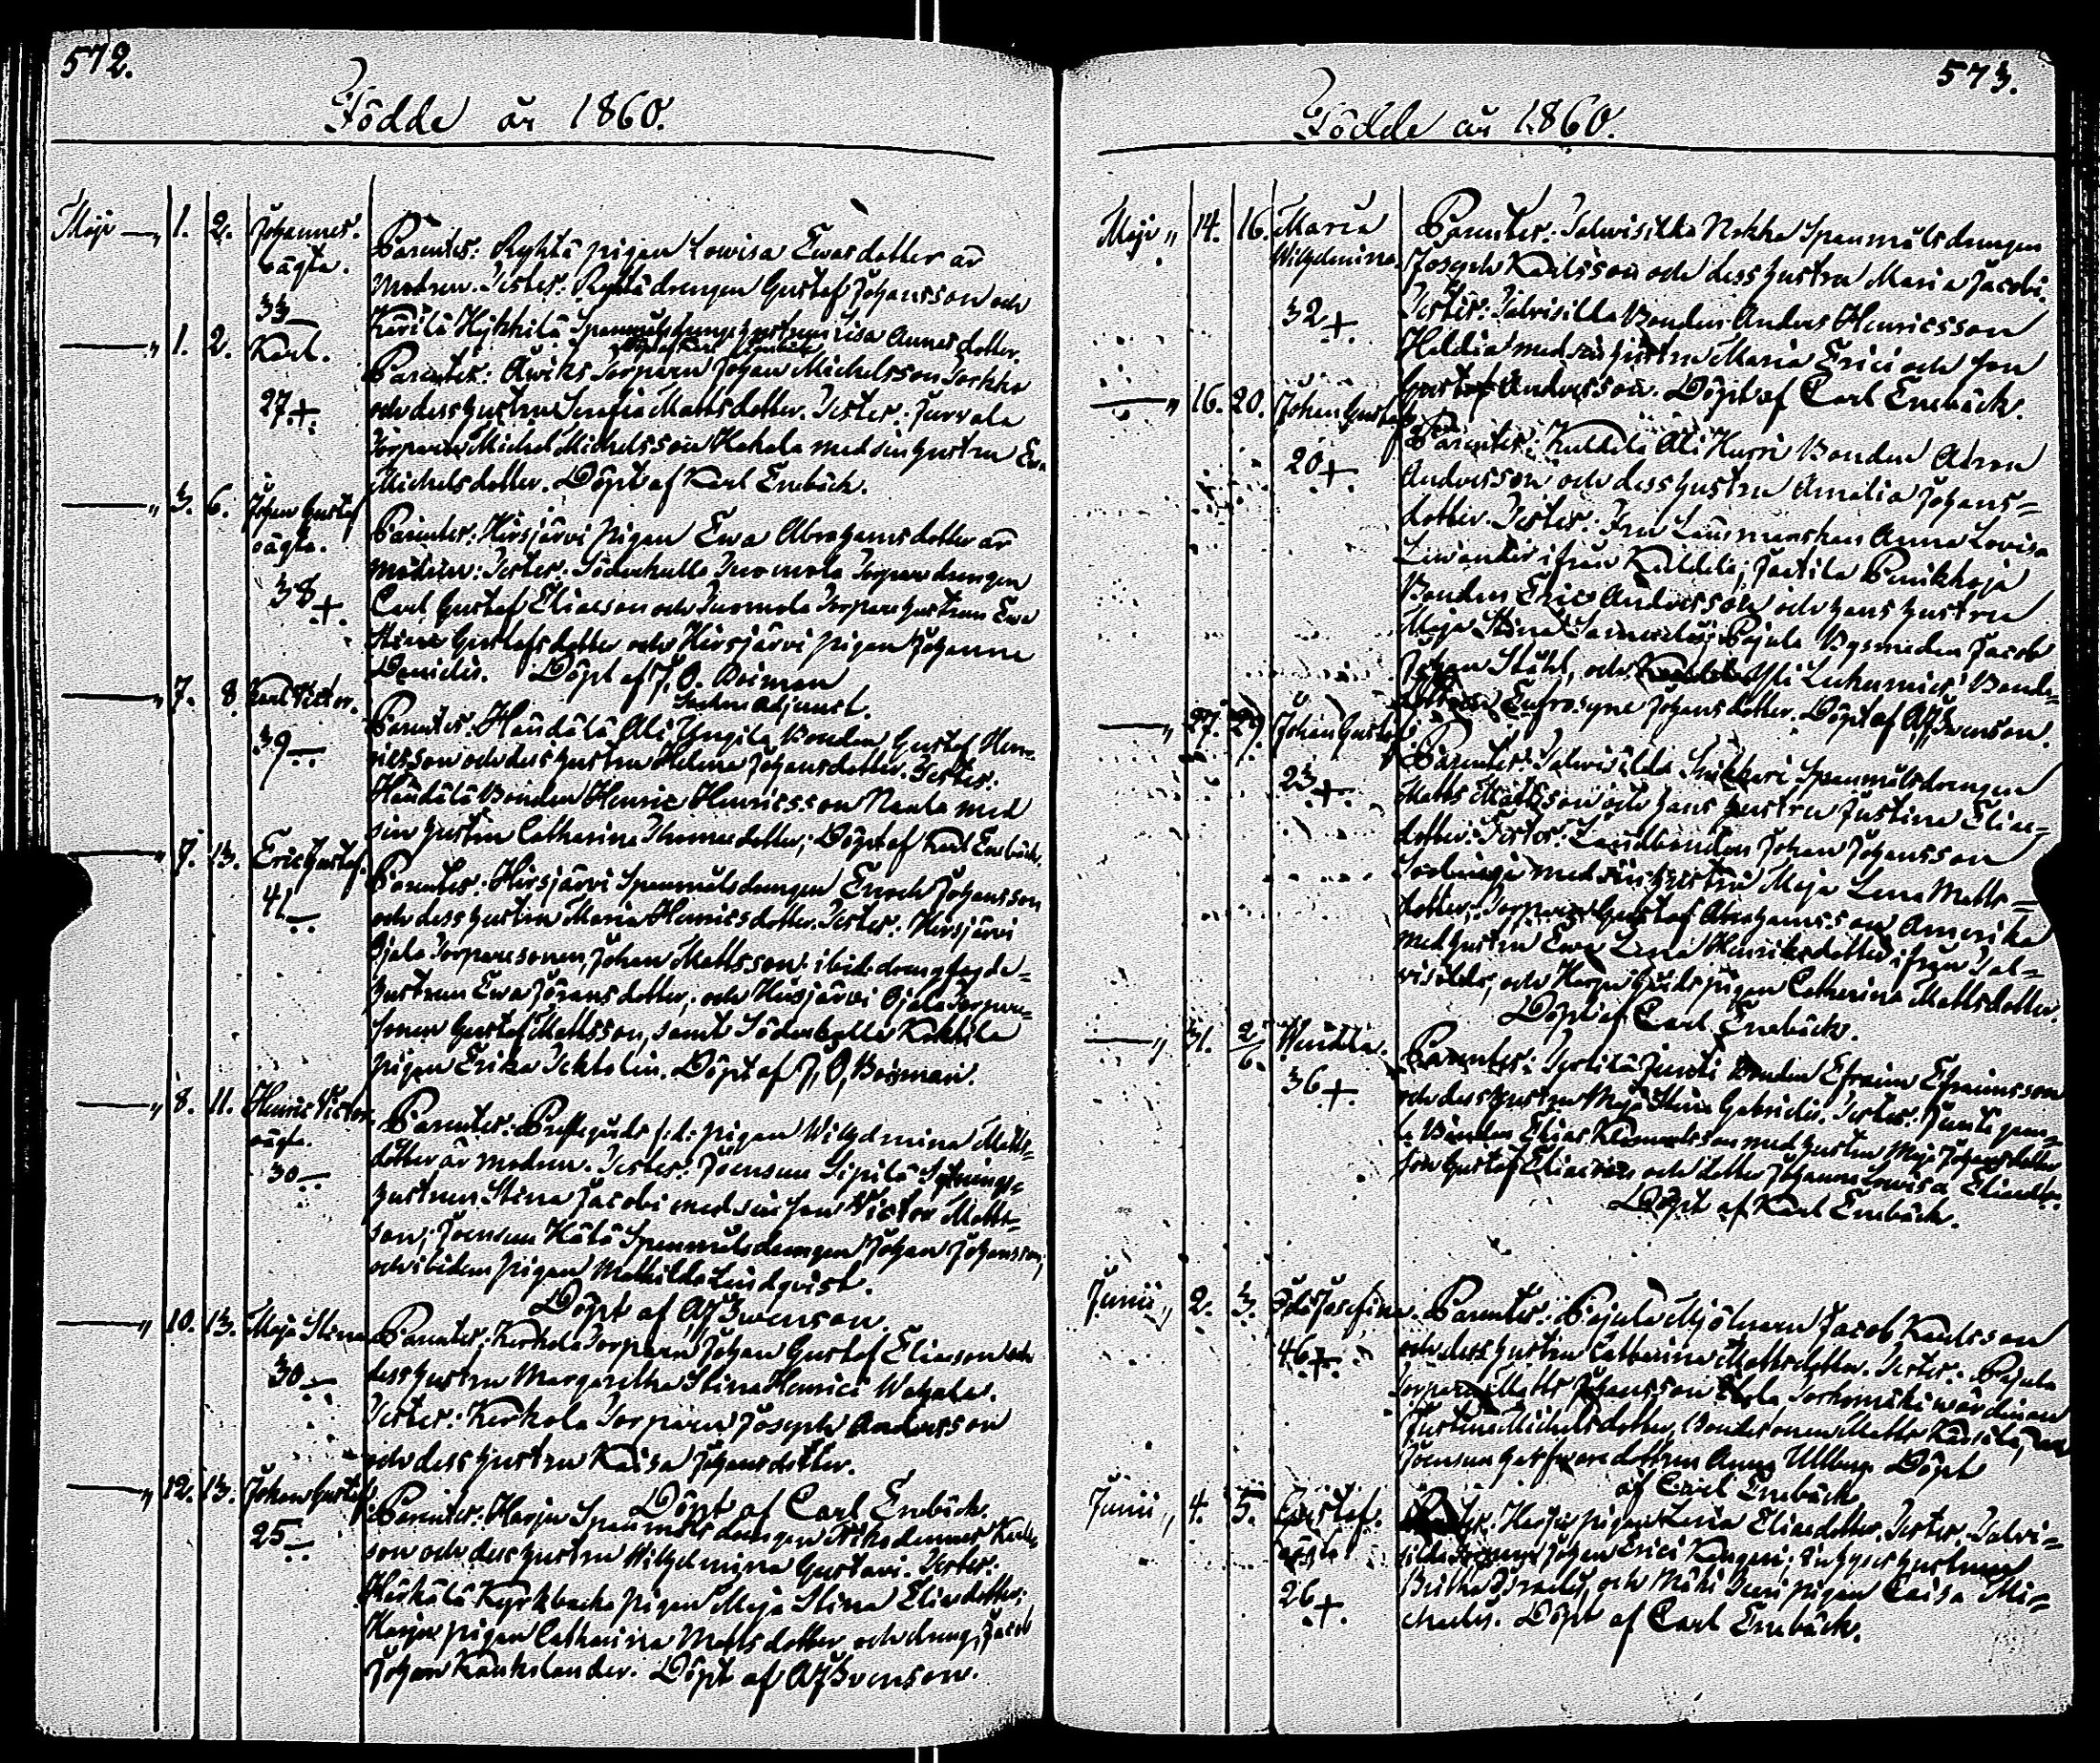 572.
Födde år 1860.
Maji — „ 1. 2. Johannes. oägta. 33
Parentes: Ryhtä pigan Lowisa Ewasdotter är
modren. Testes: Ryhtä drengen Gustaf Johansson och
Kärilä Hykkilä Spanmålsdrengs hustrun Lisa Annasdotter.
Döpt af Karl Enebäck
— „ 1. 2. Karl. 27 +
Parentes: Awiks Torparen Johan Michelsson Torkko
och dess hustru Serafia Mattsdotter. Testes: Jurvala
Torparen Michel Michelsson Hakala med sin hustru Ewa
Michelsdotter. Döpt af Karl Enebäck.
— „ 3. 6. Johan Gustaf oägta. 38 +
Parentes: Hirsjärvi pigan Ewa Abrahamsdotter är
modren: Testes: Söderkulla Tuomola Torpare drengen
Carl Gustaf Eliasson och Tuomola Torpare hustrun Ewa
Stina Gustafsdotter och Hirsjärvi pigan Johanna
Davidis. Döpt af J. O. Boiman
Sockne Adjunct.
— „ 7. 8. Karl Victor. 39 —
Parentes: Häädälä Ali Yngilä Bonden Gustaf Hen=
ricsson och dess hustru Helena Johansdotter. Testes:
Häädälä Bonden Henric Henricsson Naala med
sin hustru Catharina Thomasdotter; Döpt af Karl Enebäck.
— „ 7. 13. Eric Gustaf. 41 —
Parentes: Hirsjärvi Spanmålsdrengen Enoch Johansson
och dess hustru Maria Henricsdotter. Testes: Hirsjärvi
Ojala Torparesonen, Johan Mattsson ibid. dreng
hustrun Ewa Göransdotter; och Hirsjärvi Ojala Torpare=
sonen Gustaf Mattsson, samt Söderkulla Kokkila
pigan Erika Tekkolin. Döpt af J. O. Boiman.
— „ 8. 11. Henric Victor. oägta. 30 —
Parentes: Prestgårds f:d: pigan Wilhelmina Matts=
dotter är modren. Testes: Joensuu Sipilä Sytnings=
hustrun Stina Jacobi med sin son Victor Matts=
son; Joensuu Kälä Spanmålsdrengen Johan Johansson,
och ibidem pigan Mathilda Lindqvist.
Döpt af AJSwenson.
— „ 10. 13. Maja Stina 30 —
Parentes: Kerkola Torparen Johan Gustaf Eliasson och
dess hustru Margaretha Stina Henrici Wahala.
Testes: Kerkola Torparen Joseph Andersson
och dess hustru Kaisa Johansdotter.
Döpt af Carl Enebäck.
— „ 12. 13. Johan Gustaf. 25 —
Parentes: Harju Spanmålsdrengen Nikodemus Karls=
son och dess hustru Wilhelmina Gustavi. Testes:
Härkälä Kyrkbacka pigan Maja Stina Eliasdotter;
Harju pigan Catharina Mattsdotter och dreng: Jacob
Johan Kankolander. Döpt af AJSwenson.
573.
Födde år 1860.
Maji „ 14. 16. Maria Wilhelmina. 32 +
Parentes: Talwisilta Nokka Spanmålsdrengen
Joseph Karlsson och dess hustru Maria Jacobi.
Testes: Talvisilta Bonden Anders Henricsson
Heldia med sin hustru Maria Erici och son
Gustaf Andersson. Döpt af Carl Enebäck.
— „ 16. 20. Johan Gustaf. 20 +
Parentes: Kuldila Ali Hurri Bonden Adam
Andersson och dess hustru Amalia Johans=
dotter. Testes: Fru Länsmanskan Anna Lovisa
Lewander ifrån Kuldila; Jaatila Penikkoja
Bonden Eric Andersson och hans hustru
Maja Stina Samuelis; Pajula Bysmeden Jacob
Johan Ståhl, och Yli Bond=
dottren Eufrosyne Johansdotter. Döpt af AJSwenson.
— „ 27. 29. Johan Gustaf. 23 +
Parentes: Talwisilda Snikkari Spanmålsdrengen
Matts Mattsson och hans hustru Justina Elias=
dotter. Testes: Landbonden Johan Johansson
med sin hustru Maja Lena Matts=
dotter; Torparen Gustaf Abrahamsson Amerika
med hustru Ewa Lena Henriksdotter ifrån Tal=
visilda, och Harju Gårds pigan Catharina Mattsdotter.
Döpt af Carl Enebäck.
— „ 31. 2/6. Wendla. 36 +
Parentes: Terttilä Junti Bonden Efraim Efraimsson
och dess hustru Maja Stina Gabrielis. Testes: Junti gam=
la Bonden Elias Klemettsson med hustru Maja Johansdotter
son Gustaf Eliasson och dotter Johanna Lowisa Eliasdtr.
Döpt af Karl Enebäck.
Junii „ 2. 3. Ida Josefina. 46 +
Parentes: Pajula Mjölnaren Jacob Karlsson
och dess hustru Catharina Mattsdotter. Testes: Pajula
Torparen Matts Johansson Torkomäki wärdinnan
Justina Michelsdotter, Bondesonen Matts Kärilä, och
Joensuu gästgifvare dottren Anna Ullberg. Döpt
af Carl Enebäck.
Junii „ 4. 5. Gustaf. oägta 26 +
Parentes: Harju pigan Lena Eliasdotter. Testes: Talvi=
silda Johan Erici Kangeri; Inhyses hustrun
Britha Israelis, och Mäki Juvi pigan Caisa Mi=
chaelis. Döpt af Carl Enebäck.